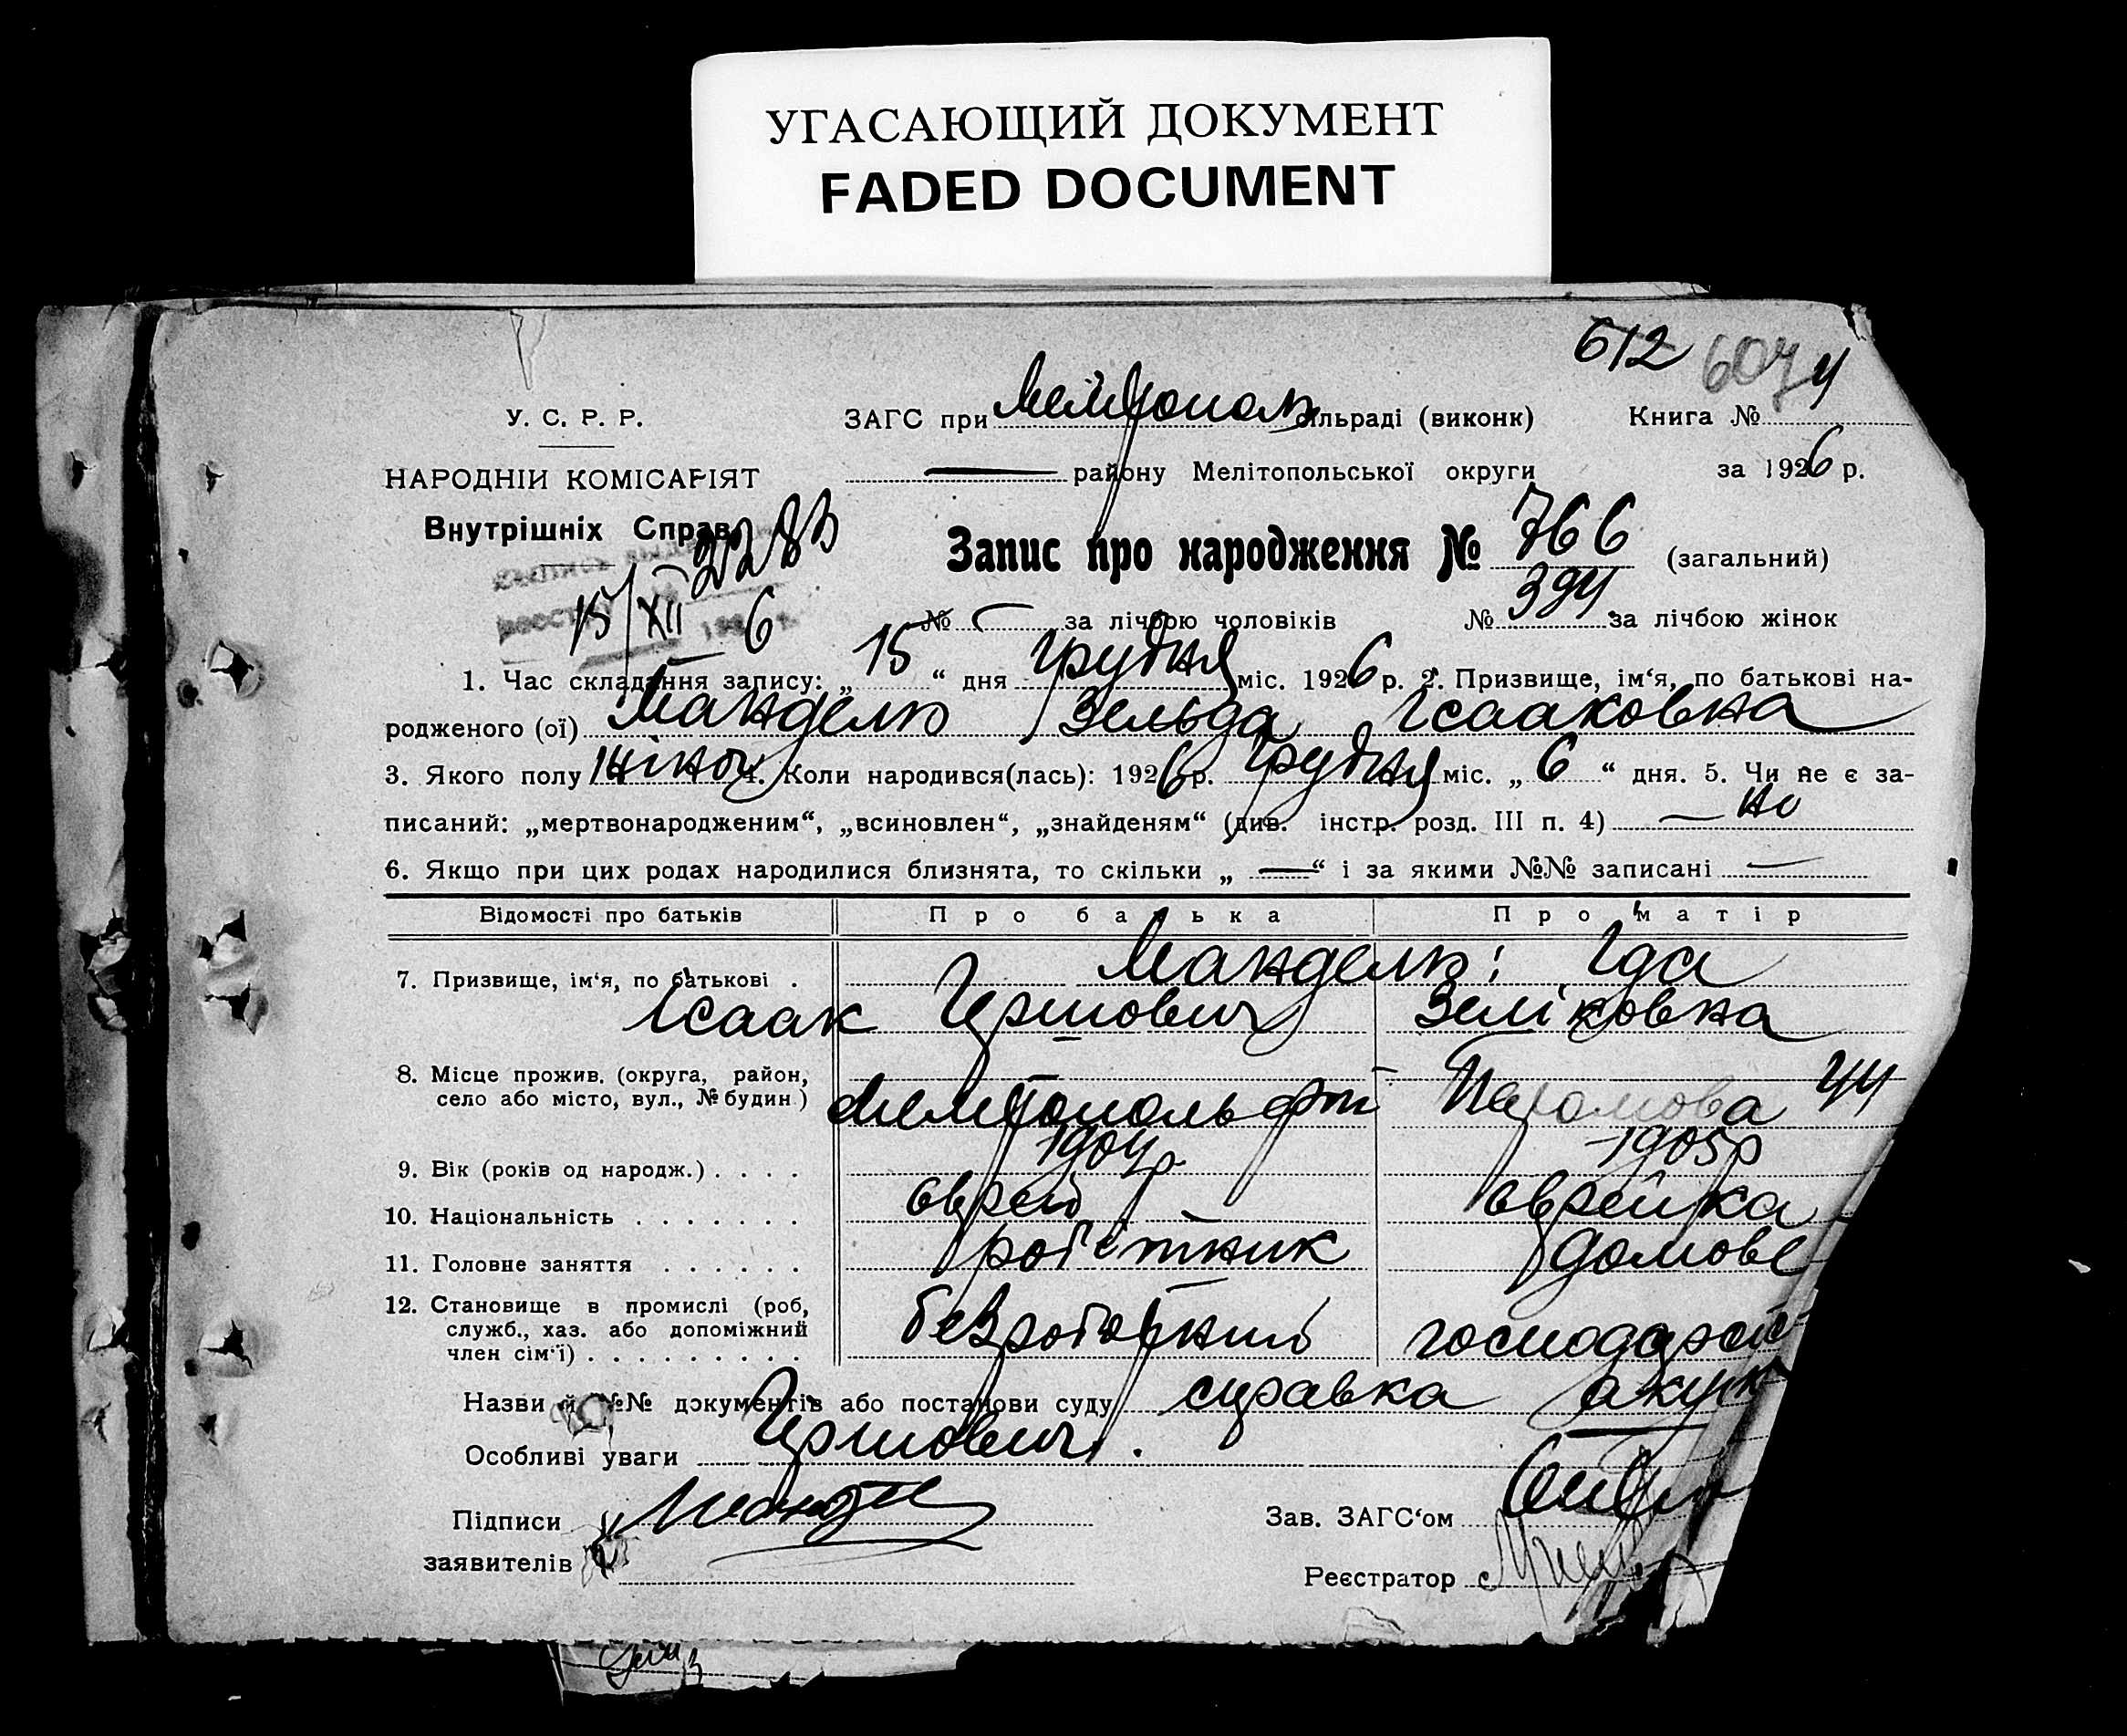 УГАСАЮЩИЙ ДОКУМЕНТ
FADED DOCUMENT
612 607 4
У. С. Р. Р. ЗАГС при Мелітополь сільраді (виконк) Книга №
НАРОДНІЙ КОМІСАРІЯТ району Мелітопольської округи за 1926 р.
Внутрішніх Справ
Запис про народження № 766 (загальний)
15/XII 6
№ за лічбою чоловіків № 394 за лічбою жінок
1. Час складання запису: „ 15 “ дня грудня міс. 1926 р. 2. Призвище, ім‘я, по батькові на-
родженого (ої) Мандель Зельда Ісааковна
3. Якого полу жіночу 4. Коли народився(лась): 1926 р. грудня міс. „ 6 “ дня. 5. Чи не є за-
писаний: „мертвонародженим“, „всиновлен“, „знайденям“ (див. інстр. розд. III п. 4) — но
6. Якщо при цих родах народилися близнята, то скільки „ — “ і за якими №№ записані —
Відомості про батьків Про батька Про матір
7. Призвище, ім‘я, по батькові . Мандель: Іда
Ісаак Гершович Зеліковна
8. Місце прожив. (округа, район,
село або місто, вул., № будин.) Мелітополь 44
9. Вік (років од народж.) . . . . 1904 р - 1905 р
10. Національність . . . . . . . еврей еврейка
11. Головне заняття . . . . . . робітник домове
12. Становище в промислі (роб,
служб., хаз. або допоміжний
член сім‘ї) . . . . . . . . . безработний господарс
Назви й №№ документів або постанови суду справка акуш
Особливі уваги Гершович.
Підписи Мандель Зав. ЗАГС‘ом
заявителів
Реєстратор